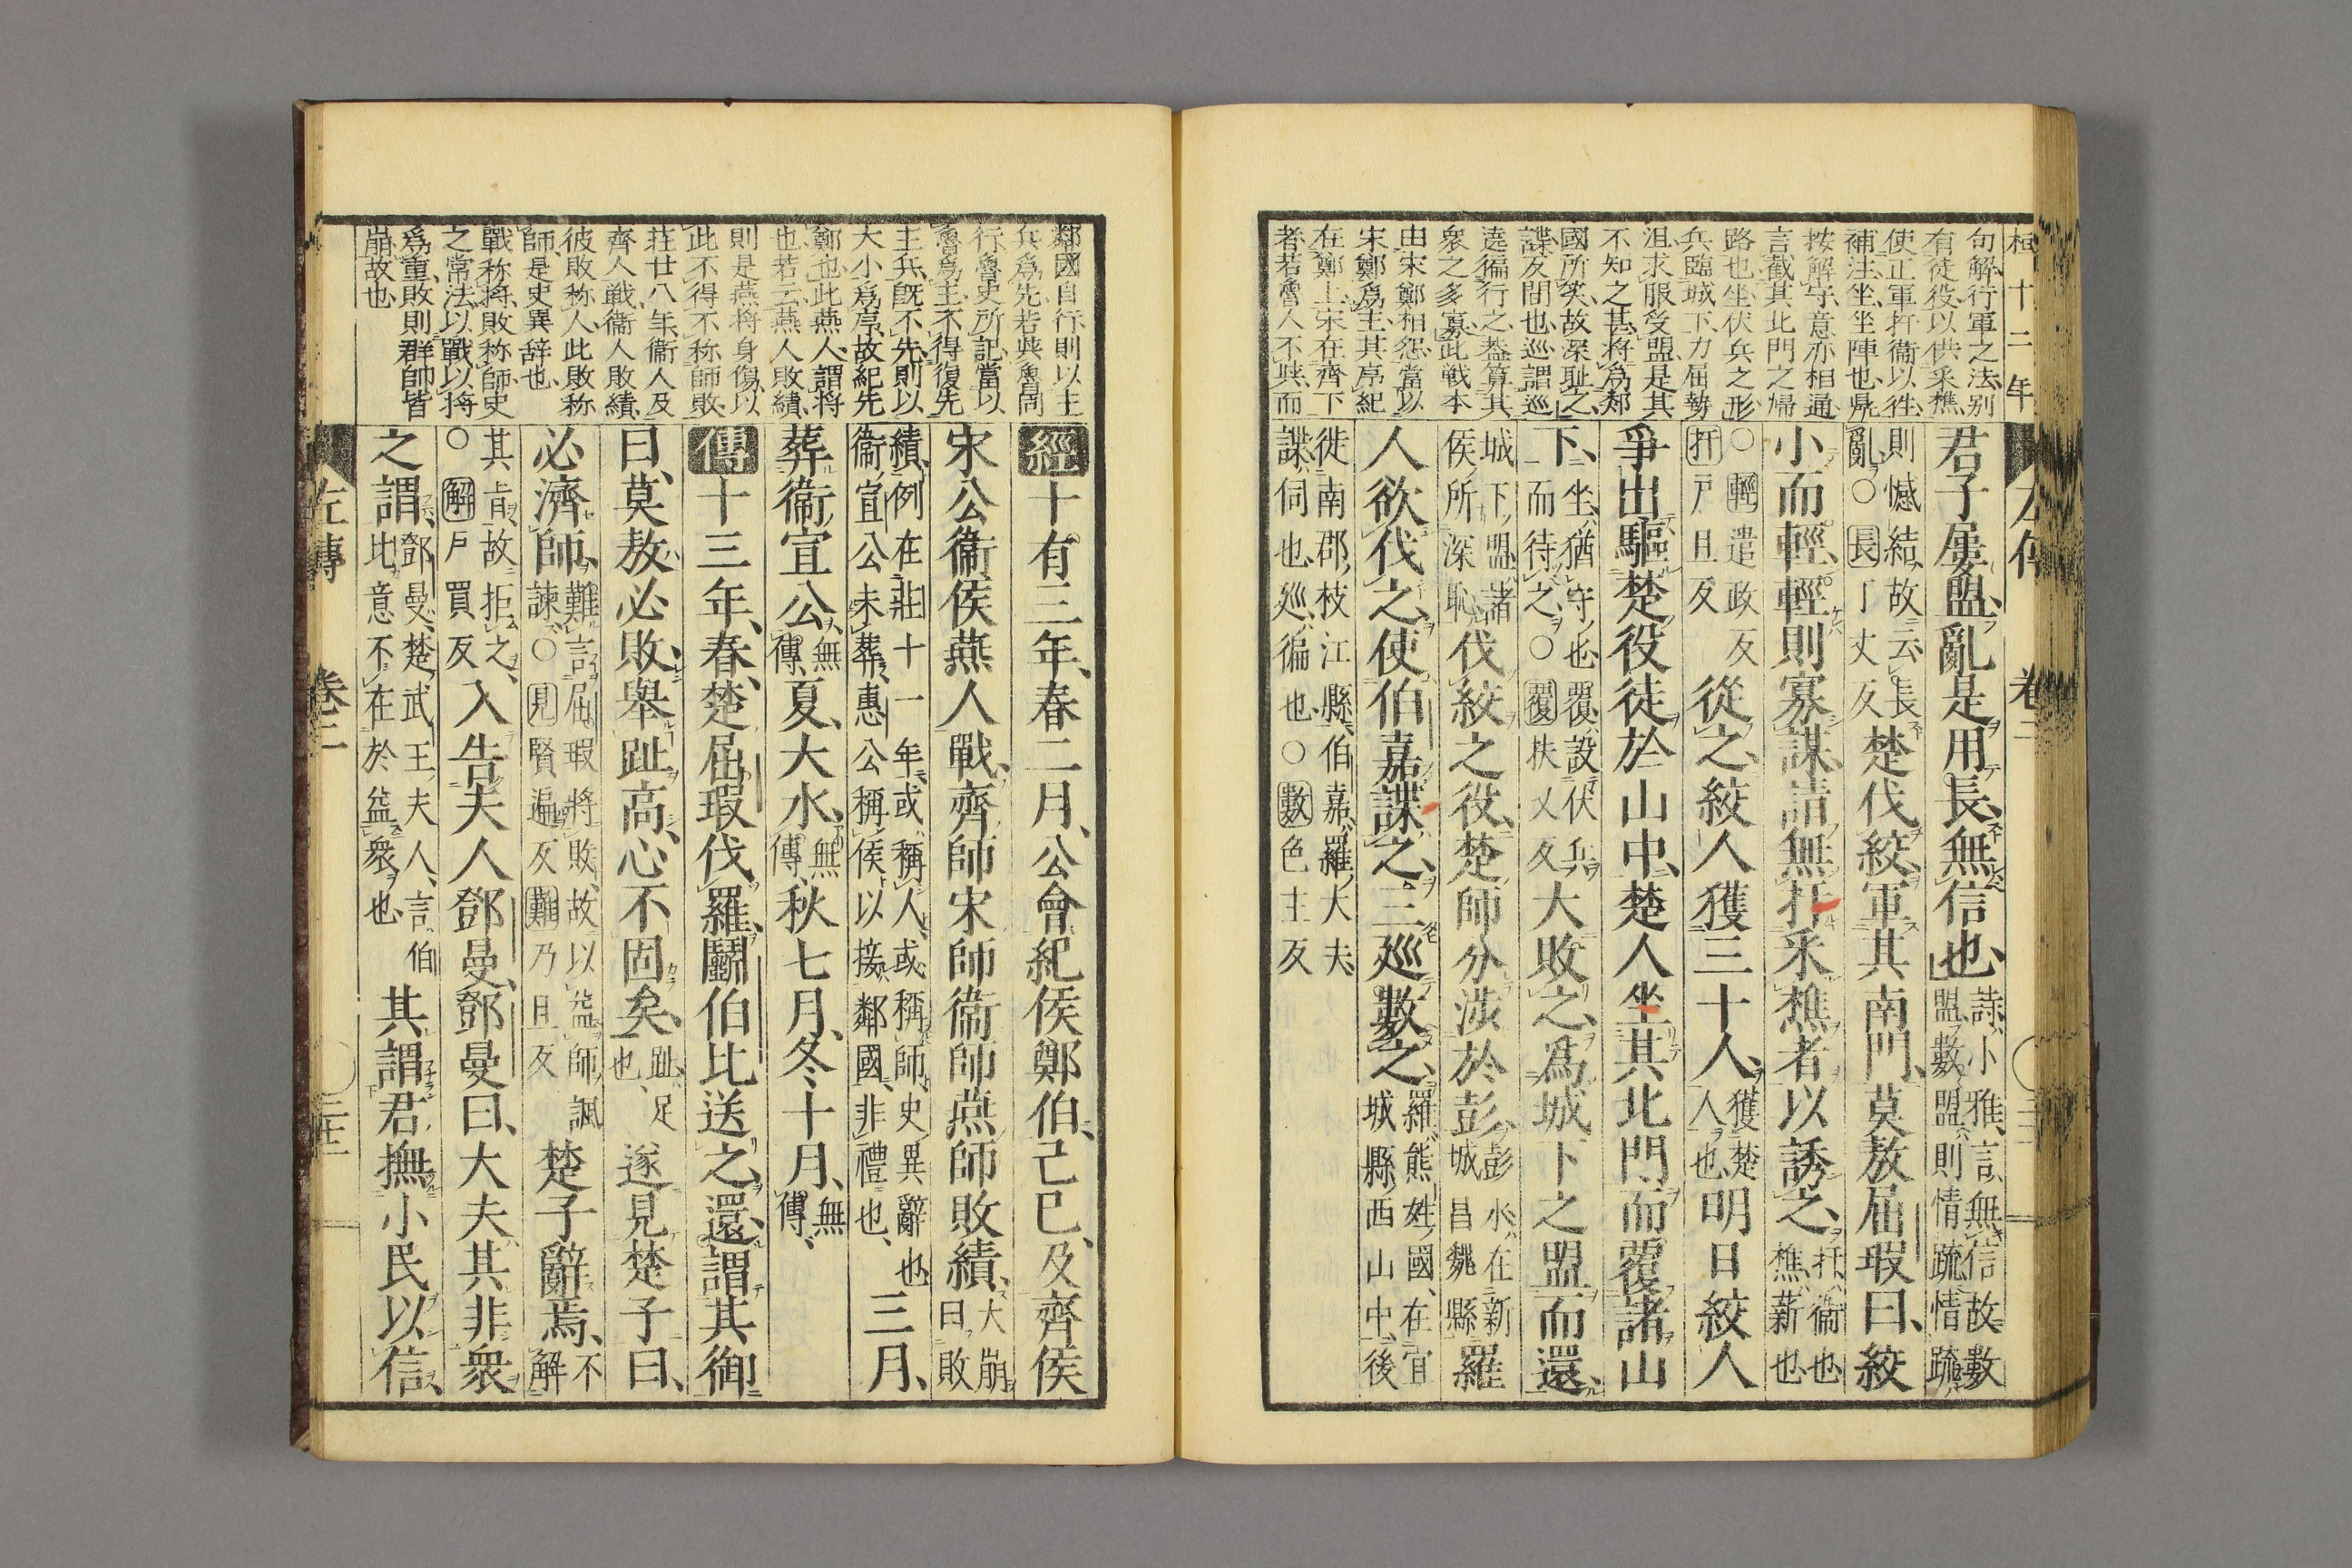 桓十二年
句解、行軍之法、別
有徒役、以供采樵、
使正軍扞衞以往、
補注、坐、坐陣也、鳧
按、解守、意亦相通、
言截其北門之歸
路也、坐伏兵之形、
兵臨城下、力屈勢
沮、求服受盟、是其
不知之甚、將爲鄰
國所笑、故深耻之、
諜、反間也、巡、謂巡
遶徧行之、蓋算其
衆之多寡、此戰本
由宋鄭相怨、當以
宋鄭爲主、其序紀
在鄭上、宋在齊下
者、若魯人不與、而
君子屢盟、亂是用長、無信也、
詩、小雅、言、無信故數
盟、數盟、則情疏、情疏
則憾結、故云、長
亂、○長丁丈反
楚伐絞、軍其南門、莫敖屈瑕曰、絞
小而輕、輕則寡謀、請無扞采樵者以誘之、
扞、衞也、
樵、薪也、
○輕遣政反
扞戸旦反
從之、絞人獲三十人、
獲楚
人也、
明日絞人
爭出、驅楚役徒於山中、楚人坐其北門、而覆諸山
下、
坐、猶守也、覆、設伏兵
而待之、○覆扶又反
大敗之、爲城下之盟而還、
城下盟、諸
侯所深恥、
伐絞之役、楚師分渉於彭、
彭水、在新
城昌魏縣、
羅
人欲伐之、使伯嘉諜之、三巡數之、
羅、熊姓、國、在宜
城縣、西山中、後
徙南郡、枝江縣、伯嘉、羅大夫、
諜、伺也、巡、徧也、○數色主反
左傳 卷二
鄰國自行、則以主
兵爲先、若與魯同
行、魯史所記、當以
魯爲主、不得復先
主兵、既不先、則以
大小爲序、故紀先
鄭也、此燕人、謂將
也、若云燕人敗績、
則是燕將身傷、以
此不得不称師敗、
莊廿八年、衞人及
齊人戰、衞人敗績、
彼敗称人、此敗称
師、是史異辞也、
戰称將、敗称師、史
之常法、以戰以將
爲重、敗則群帥皆
崩故也、
經十有三年、春二月、公會紀侯鄭伯、己巳、及齊侯
宋公衞侯燕人戰、齊師宋師衞師燕師敗績、
大崩
曰敗
績、例在莊十一年、或稱人、或稱師、史異辭也、
衞宣公未葬、惠公稱侯以接鄰國、非禮也、
三月、
葬衞宣公、
無
傳、
夏、大水、
無
傳、
秋七月、冬十月、
無
傳、
傳十三年、春、楚屈瑕伐羅、鬭伯比送之、還、謂其御
曰、莫敖必敗、舉趾高、心不固矣、
趾、足
也、
遂見楚子曰、
必濟師、
難言屈瑕將敗、故以益師諷
諫、○見賢遍反難乃旦反
楚子辭焉、
不
解
其旨、故拒之、
○解戸買反
入告夫人鄧曼、鄧曼曰、大夫其非衆
之謂、
鄧曼、楚武王夫人、言、伯
比意不在於益衆也、
其謂君撫小民以信、
左傳 卷二